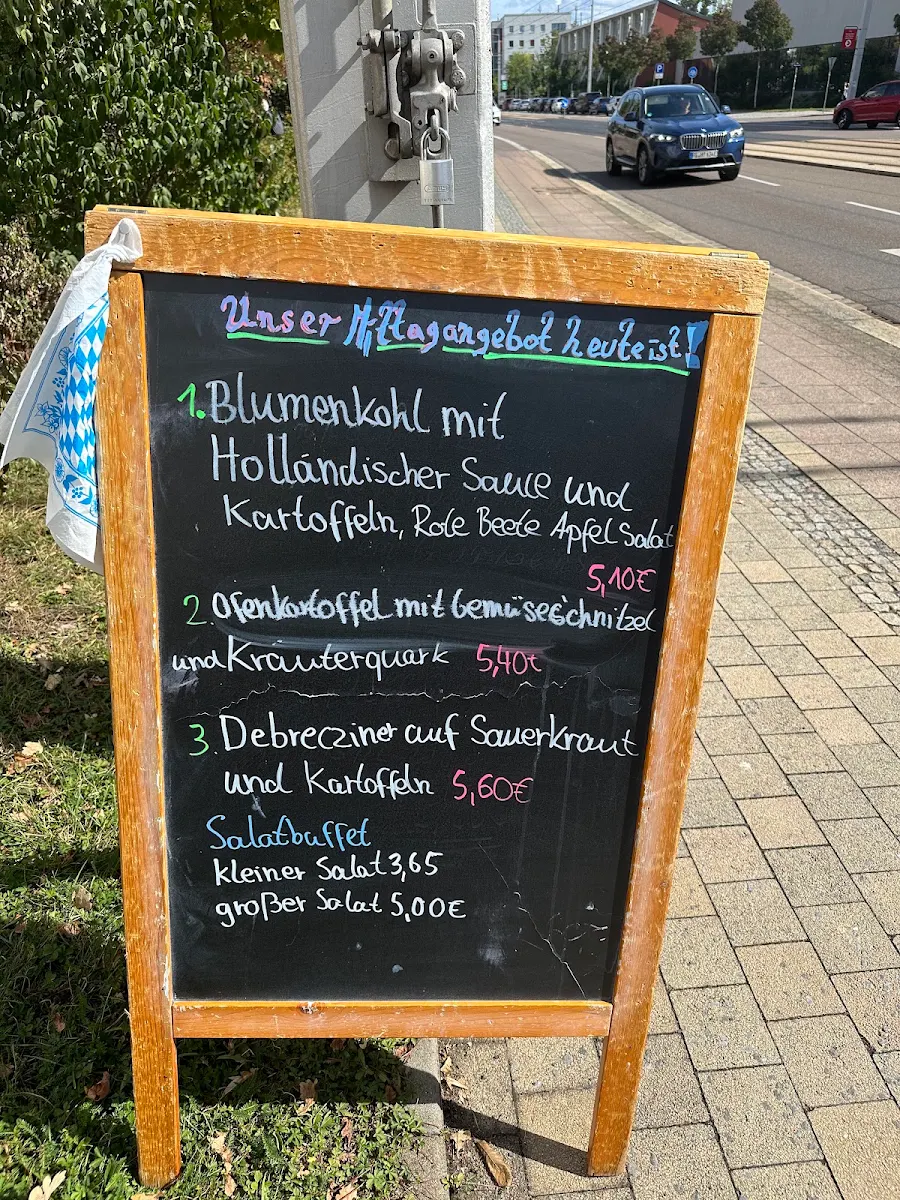 Unser Mittagangebot heute ist!
1. Blumenkohl mit
Holländischer Sauce und
Kartoffeln, Rote Beete Apfel Salat
5,10€
2. Ofenkartoffel mit Gemüseschnitzel
und Kräuterquark 5,40€
3. Debrecziner auf Sauerkraut
und Kartoffeln 5,60€
Salatbuffet
kleiner Salat 3,65
großer Salat 5,00€